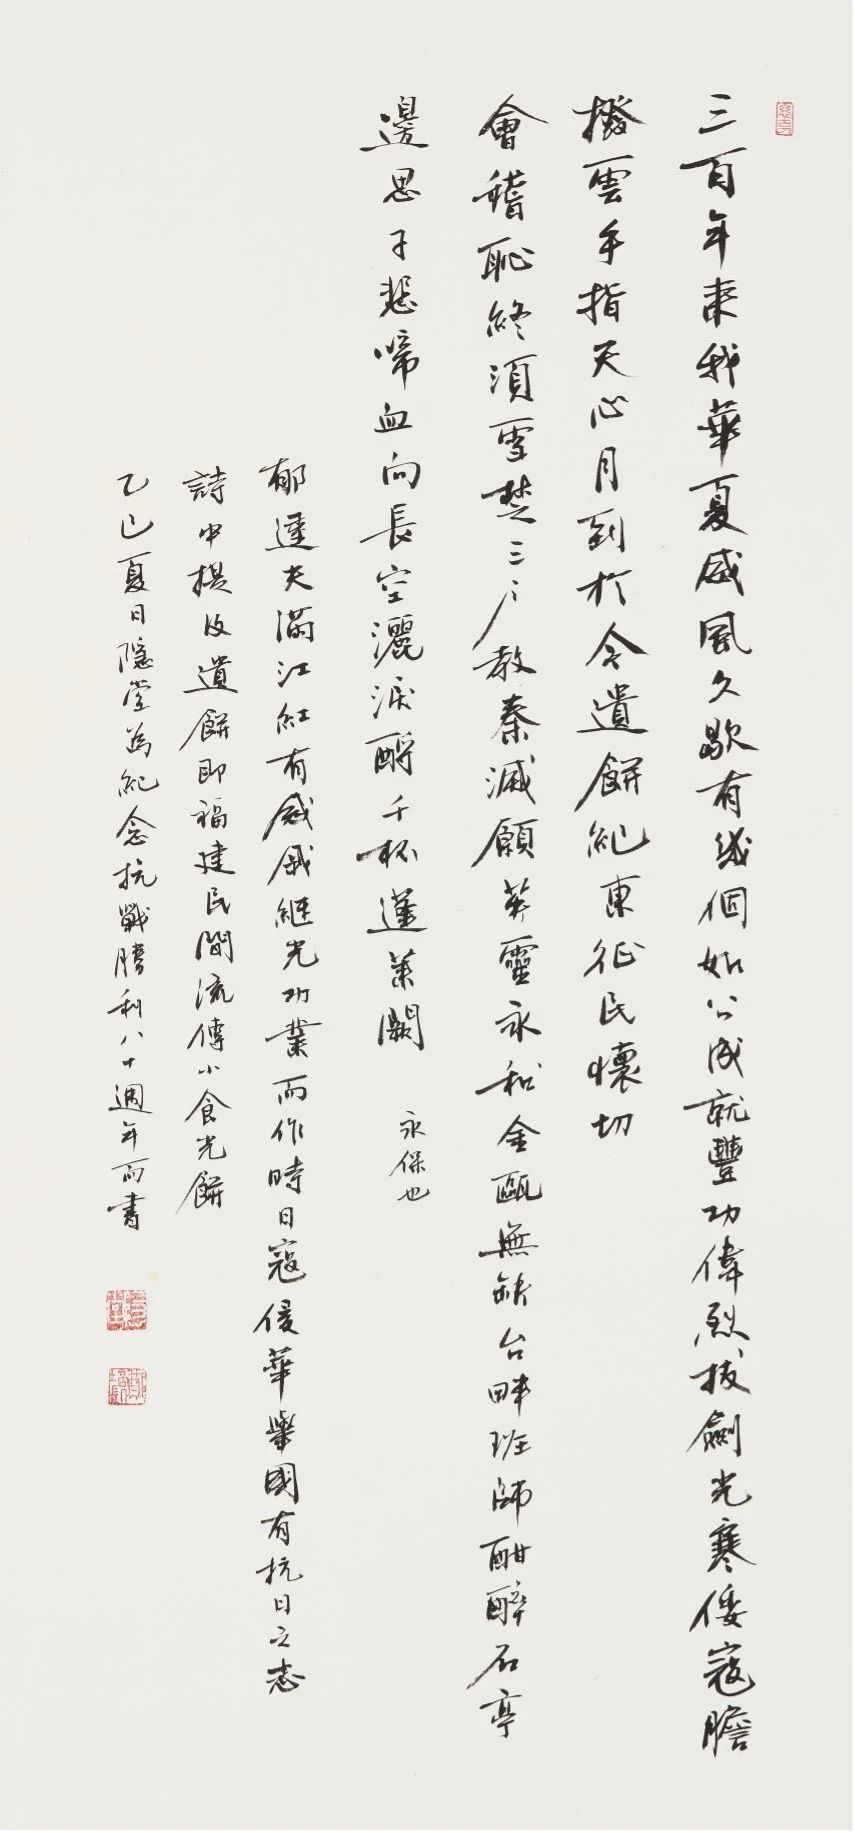 三百年來我華夏威風久歇有幾個如公成就豐功偉烈拔劍光寒倭寇膽
撥雲手指天心月到於今遺餅紀東征民懷切
會稽恥終須雪楚三戶教秦滅願英靈永和金甌無缺台畔班師酣醉石亭
邊思子悲啼血向長空灑淚酹千杯蓬萊闕
永保也
郁達夫滿江紅有感戚繼光功業而作時日寇侵華舉國有抗日之志
詩中提及遺餅即福建民間流傳小食光餅
乙巳夏日隱堂為紀念抗戰勝利八十週年而書